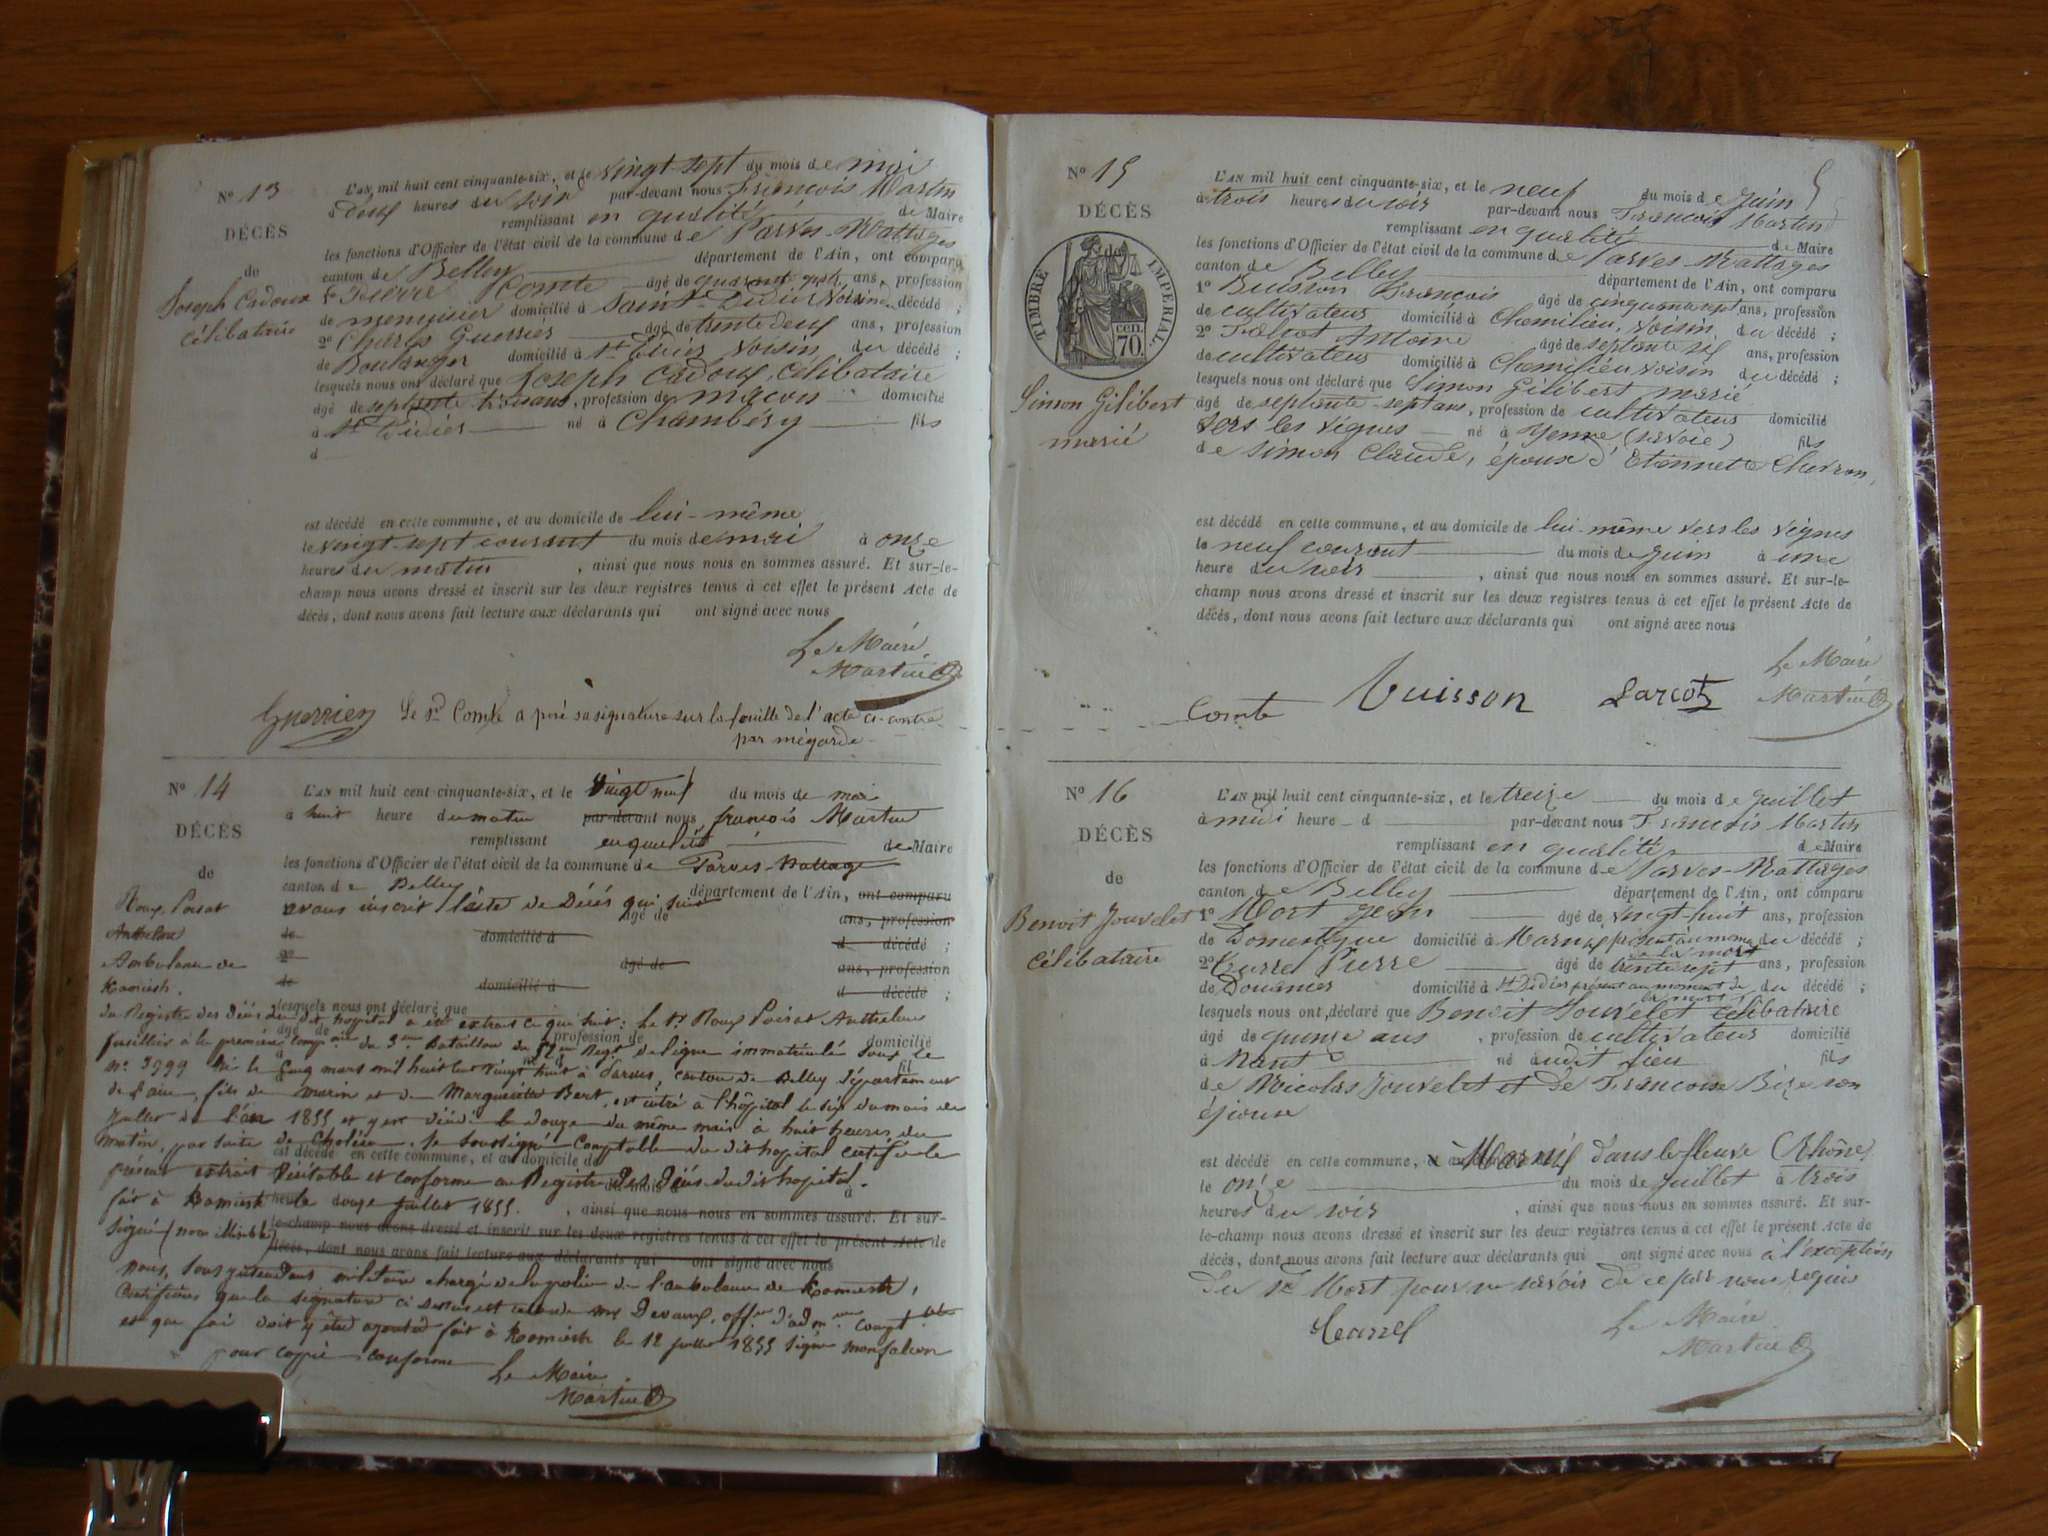 No 13
DÉCÈS
de
Joseph Cadoux
célibataire
L'AN mil huit cent cinquante-six, et le vingt-sept du mois de mai
à deux heures du soir par-devant nous François Martin
remplissant en qualité de Maire
les fonctions d'Officier de l'état civil de la commune de Parves-Nattages
canton de Belley département de l'Ain, ont comparu
1º Pierre Comte âgé de ans, profession
de menuisier domicilié à Saint Didier Voisin décédé ;
2º Charles Guerrier âgé de trente deux ans, profession
de Boulanger domicilié à St Didier Voisin du décédé ;
lesquels nous ont déclaré que Joseph Cadoux, célibataire
âgé de septante ans, profession de maçon domicilié
à St Didier né à Chambéry fils
d
est décédé en cette commune, et au domicile de lui-même
le vingt-sept courant du mois de mai à onze
heures du matin, ainsi que nous nous en sommes assuré. Et sur-le-
champ nous avons dressé et inscrit sur les deux registres tenus à cet effet le présent Acte de
décès, dont nous avons fait lecture aux déclarants qui ont signé avec nous
Le Maire
Martin
Guerrier Le sr Comte a posé sa signature sur la feuille de l'acte ci-contre
par mégarde
No 14
DÉCÈS
de
Roux Poisat
Anthelme
Ambulance de
Kamiesh.
L'AN mil huit cent cinquante-six, et le vingt neuf du mois de mai
à huit heure du matin par-devant nous françois Martin
remplissant en qualité de Maire
les fonctions d'Officier de l'état civil de la commune de Parves-Nattage
canton de Belley département de l'Ain, ont comparu
avons inscrit l'acte de Décès qui suit âgé de ans, profession
de domicilié à d décédé ;
2º âgé de ans, profession
de domicilié à d décédé ;
lesquels nous ont déclaré que
du Registre des Décès du dit hopital a été extrait ce qui suit : Le sr Roux Poisat Anthelme
fusillier à la première compnie du 3me Bataillon du Regt de ligne immatriculé sous le
no 3799 né le cinq mars mil huit cent vingt huit à Parves, canton de Belley Département
de l'ain, fils de et de Marguerite Bert, est entré à l'hôpital le six du mois de
Juillet de l'an 1855 et y est décédé le douze du même mois à huit heures du
matin, par suite de choléra. Je soussigné Comptable du dit hopital certifie le
présent extrait Véritable et conforme au Registre des Décès du dit hopital.
fait à Kamiesh le douze Juillet 1855. , ainsi que nous nous en sommes assuré. Et sur-
Signé (nom illisible) le-champ nous avons dressé et inscrit sur les deux registres tenus à cet effet le présent Acte de
décès, dont nous avons fait lecture aux déclarants qui ont signé avec nous
Nous, Sous intendant militaire chargé de la police de l'ambulance de Kamiesh,
Certifions que la signature ci dessus est celle de mr Devaux, offer d'adm.
et que foi doit y être ajoutée fait à Kamiesh le 12 juillet 1855 signé monfalcon
pour copie conforme Le Maire
Martin
No 15
5
DÉCÈS
de
TIMBRE IMPÉRIAL
70 cen.
Simon Gilibert
marié
L'AN mil huit cent cinquante-six, et le neuf du mois de Juin
à trois heures du soir par-devant nous François Martin
remplissant en qualité de Maire
les fonctions d'Officier de l'état civil de la commune de Parves-Nattages
canton de Belley département de l'Ain, ont comparu
1º Buisson François âgé de ans, profession
de cultivateur domicilié à Chemilieu, voisin du décédé ;
2º Antoine âgé de septante six ans, profession
de cultivateur domicilié à Chemilieu voisin du décédé ;
lesquels nous ont déclaré que Simon Gilibert marié
âgé de septante-sept ans, profession de cultivateur domicilié
vers les vignes né à Yenne (savoie) fils
de Simon Claude, époux d'Etiennette Chevron,
est décédé en cette commune, et au domicile de lui-même vers les vignes
le neuf courant du mois de juin à une
heure du soir, ainsi que nous nous en sommes assuré. Et sur-le-
champ nous avons dressé et inscrit sur les deux registres tenus à cet effet le présent Acte de
décès, dont nous avons fait lecture aux déclarants qui ont signé avec nous
Le Maire
Comte Buisson Martin
No 16
DÉCÈS
de
Benoit Jouvelet
célibataire
L'AN mil huit cent cinquante-six, et le treize du mois de juillet
à midi heure d par-devant nous François Martin
remplissant en qualité de Maire
les fonctions d'Officier de l'état civil de la commune de Parves-Nattages
canton de Belley département de l'Ain, ont comparu
1º Mort Jean âgé de vingt-huit ans, profession
de Domestique domicilié à présent au moment de la mort du décédé ;
2º Pierre âgé de trente sept ans, profession
de Douanier domicilié à St Didier présent au moment de la mort du décédé ;
lesquels nous ont déclaré que Benoit Jouvelet célibataire
âgé de quinze ans, profession de cultivateur domicilié
à Nant né audit lieu fils
de Nicolas Jouvelet et de Françoise son
épouse
est décédé en cette commune, à dans le fleuve (Rhône)
le onze du mois de juillet à trois
heures du soir, ainsi que nous nous en sommes assuré. Et sur-
le-champ nous avons dressé et inscrit sur les deux registres tenus à cet effet le présent Acte de
décès, dont nous avons fait lecture aux déclarants qui ont signé avec nous à l'exception
du sr Mort pour ne savoir de ce par nous requis
Le Maire
Martin